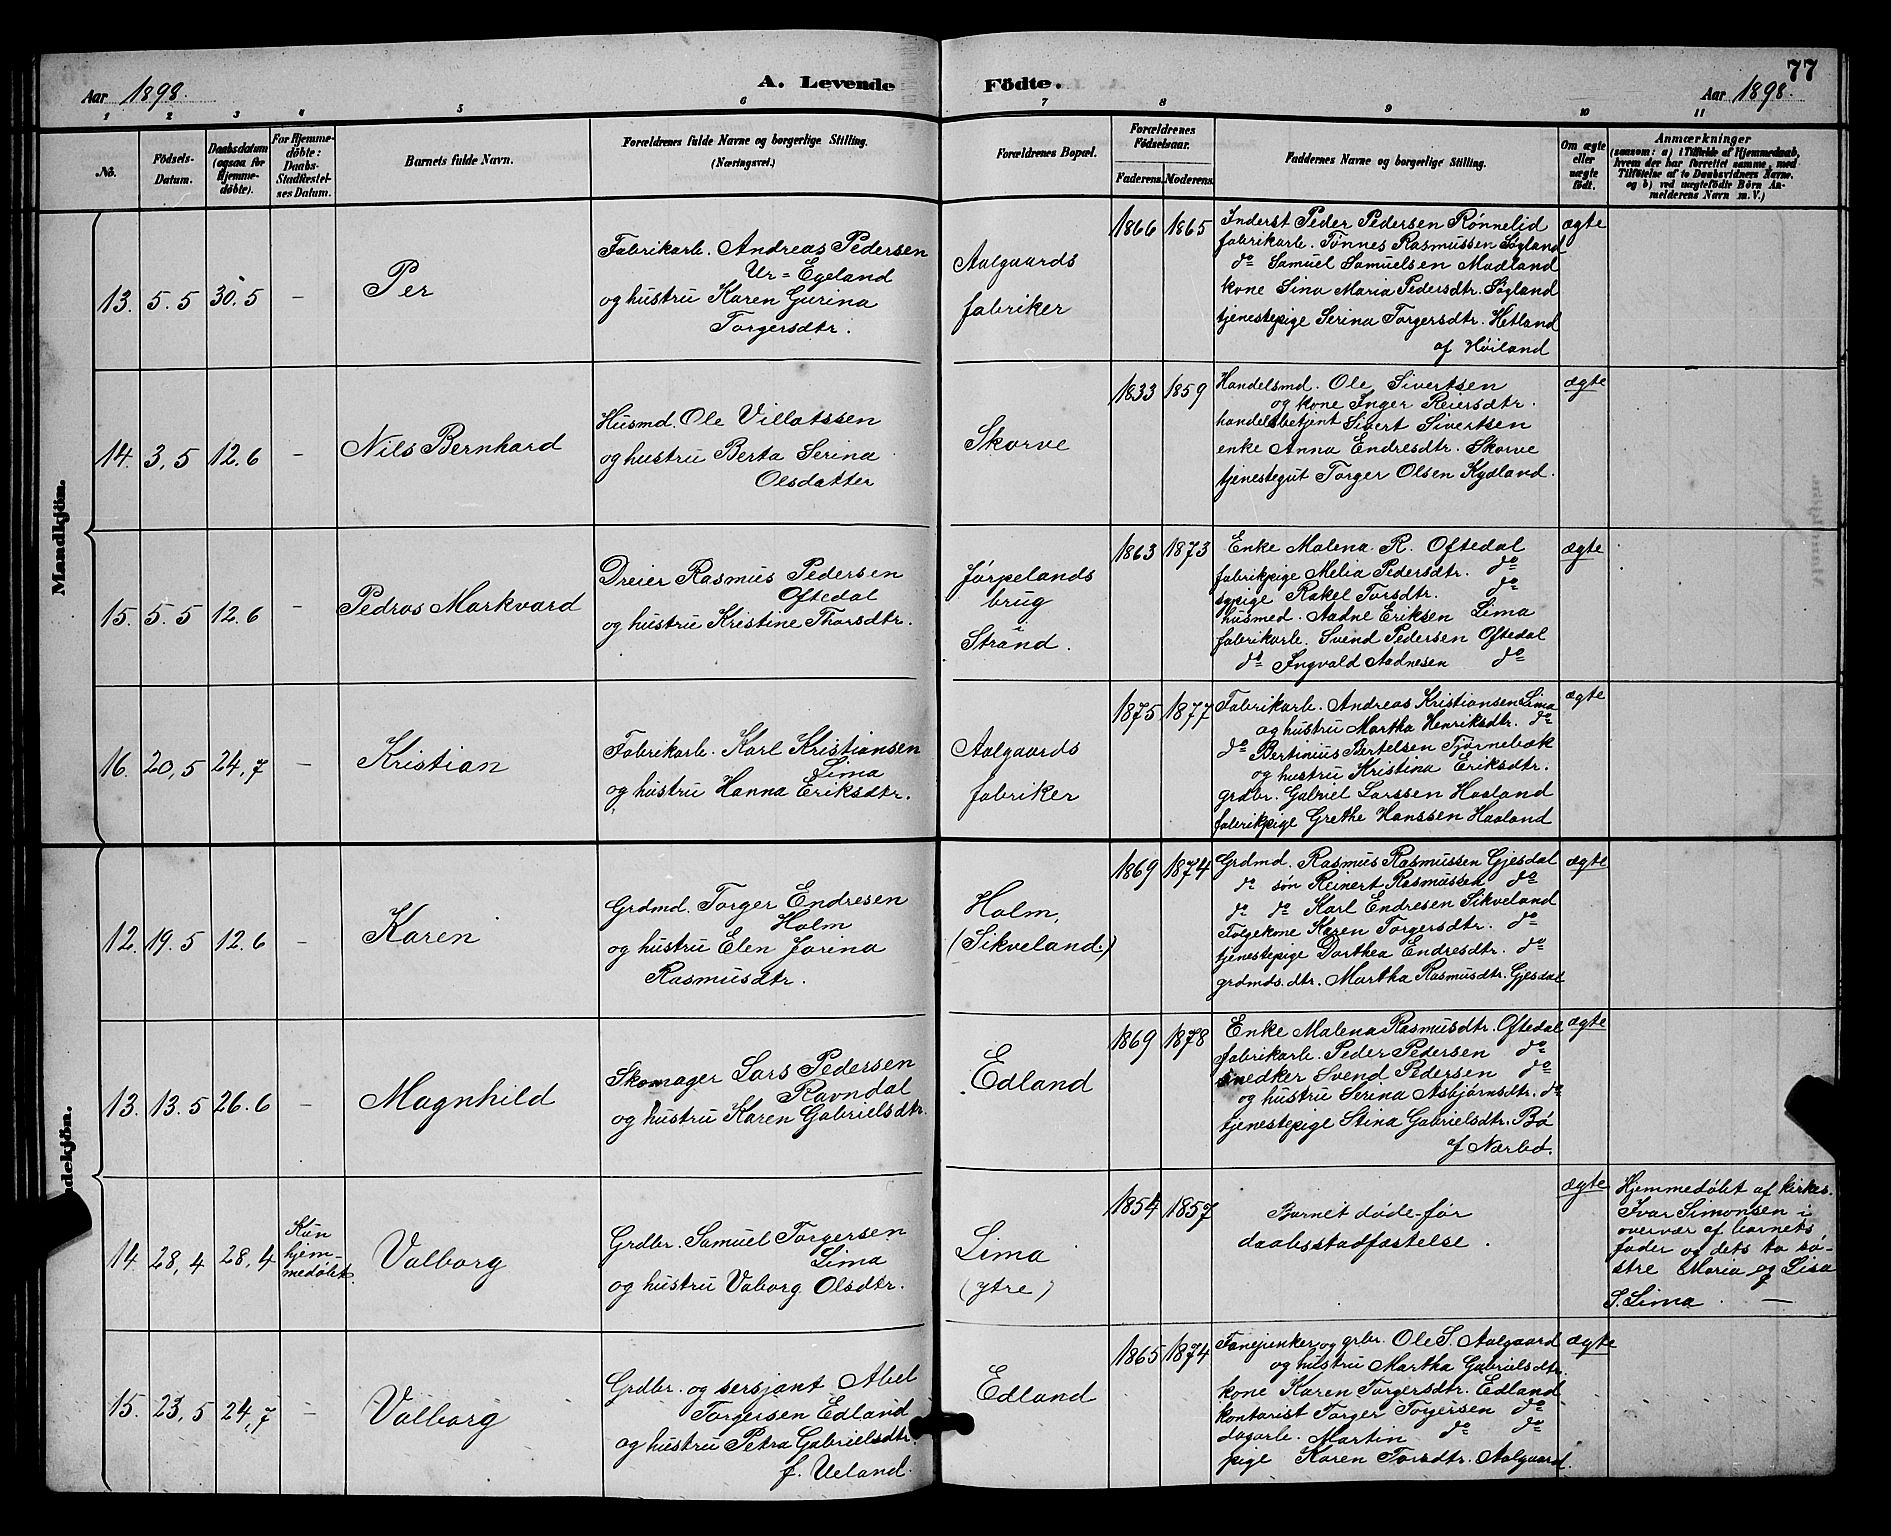 77
Aar 1898. A. Levende Födte. Aar 1898.
1 2 3 4 5 6 7 8 9 10 11
No.
Födsels-Datum.
Daabsdatum (ogsaa for Hjemme-döbte).
For Hjemme-döbte: Daabs-Stadfæstel-ses Datum.
Barnets fulde Navn.
Forældrenes fulde Navne og borgerlige Stilling.
(Næringsvei.)
Forældrenes Bopæl.
Forældrenes Födselsaar.
Faderens. Moderens.
Faddernes Navne og borgerlige Stilling.
Om ægte eller uægte födt.
Anmærkninger
(saasom: a) i Tilfælde af Hjemmedaab,
hvem der har forrettet samme, med
Tilföielse af to Daabsvidners Navne.
og b) ved uægtefödte Börn An-
melderens Navn m. V.)
Mandkjön.
13. 5.5 30.5 – Per
Fabrikarb. Andreas Pedersen
Ur=Egeland
og hustru Karen Gurina
Torgersdtr.
Aalgaards
fabriker
1866 1865
Inderst Peder Pedersen Rønnelid
fabrikarb. Tønnes Rasmussen Søgland
do Samuel Samuelsen Madland
kone Sina Maria Pedersdtr. Søgland
tjenestepige Serina Torgersdtr. Hetland
af Høiland
ægte
14. 3,5 12.6 – Nils Bernhard
Husmd. Ole Villatssen
og hustru Berta Serina
Olsdatter
Skorve
1833 1859
Handelsmd. Ole Sivertsen
og kone Inger Reiersdtr.
handelsbetjent Sivert Sivertsen
enke Anna Endresdtr. Skorve
tjenestegut Torger Olsen Kydland.
ægte
15. 5.5 12.6 – Pedras Markvard
Dreier Rasmus Pedersen
Oftedal
og hustru Kristine Thorsdtr.
Jørpelands
brug
i
Strand.
1863 1873
Enke Malena R. Oftedal
fabrikpige Melia Pedersdtr. do
sypige Rakel Torsdtr. do
husmed. Aadne Eriksen Lima
fabrikarb. Svend Pedersen Oftedal
do Ingvald Aadnesen do
ægte
16. 20,5 24,7 – Kristian
Fabrikarb. Karl Kristiansen
Lima
og hustru Hanna Eriksdtr.
Aalgaards
fabriker
1875 1877
Fabrikarb. Andreas Kristiansen Lima
og hustru Martha Henriksdtr. do
do Bertinius Bertelsen Tjørnebæk
og hustru Kristina Eriksdtr.
grdbr. Gabriel Larssen Haaland
fabrikpige Grethe Hanssen Haaland
ægte
ndekjön.
12. 19.5 12.6 – Karen
Grdmd. Torger Endresen
Holm
og hustru Elen Jorina
Rasmusdtr.
Holm,
(Sikveland.)
1869 1874
Grdmd. Rasmus Rasmussen Gjesdal
do søn Reinert Rasmussen do
do do Karl Endresen Sikveland
Følgekone Karen Torgersdtr. do
tjenestepige Dorthea Endresdtr. do
grdmds. dtr. Martha Rasmusdtr. Gjesdal
ægte
13. 13.5 26.6 – Magnhild
Skomager Lars Pedersen
Ravndal
og hustru Karen Gabrielsdtr.
Edland
1869 1878
Enke Malena Rasmusdtr. Oftedal
fabrikarb. Peder Pedersen do
snedker Svend Pedersen do
og hustru Serina Asbjørnsdtr. do
tjenestepige Stina Gabrielsdtr. Bø
af Nærbø.
ægte
14 28,4 28,4 Kun
hjem-
medøbt. Valborg
Grdbr. Samuel Torgersen
Lima
og hustru Vaborg Olsdtr.
Lima
(ytre)
1854 1857
Barnet døde før
daabsstadfæstelse.
ægte
Hjemmedøbt af kirkes.
Ivar Simonsen i
overvær af barnets
fader og dets to sø-
stre Maria og Lisa
S. Lima. –
15. 23,5 24,7 – Valborg
Grdbr. og sersjant Abel
Torgersen Edland
og hustru Petra Gabrielsdtr.
f. Ueland.
Edland
1865 1874
Fanejunker og grbr. Ole S. Aalgaard
og hustru Martha Gabrielsdtr.
kone Karen Torgersdtr. Edland
kontorist Torger Torgersen do
dagarb. Martin do do
pige Karen Torsdtr. Aalgaard.
ægte